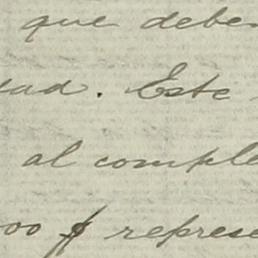 que deben
dad. Este
al comple
represe